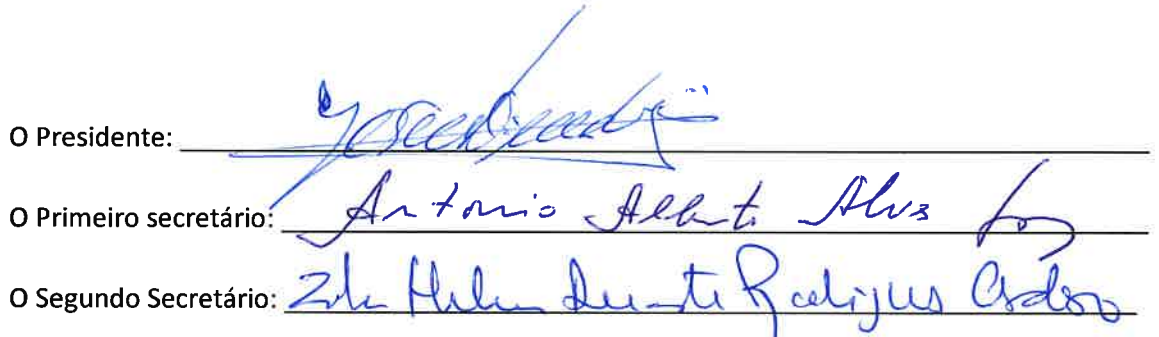 O Presidente:
O Primeiro secretário: Antonio Alberto Alves
O Segundo Secretário: Helena Duarte Rodrigues Cardoso